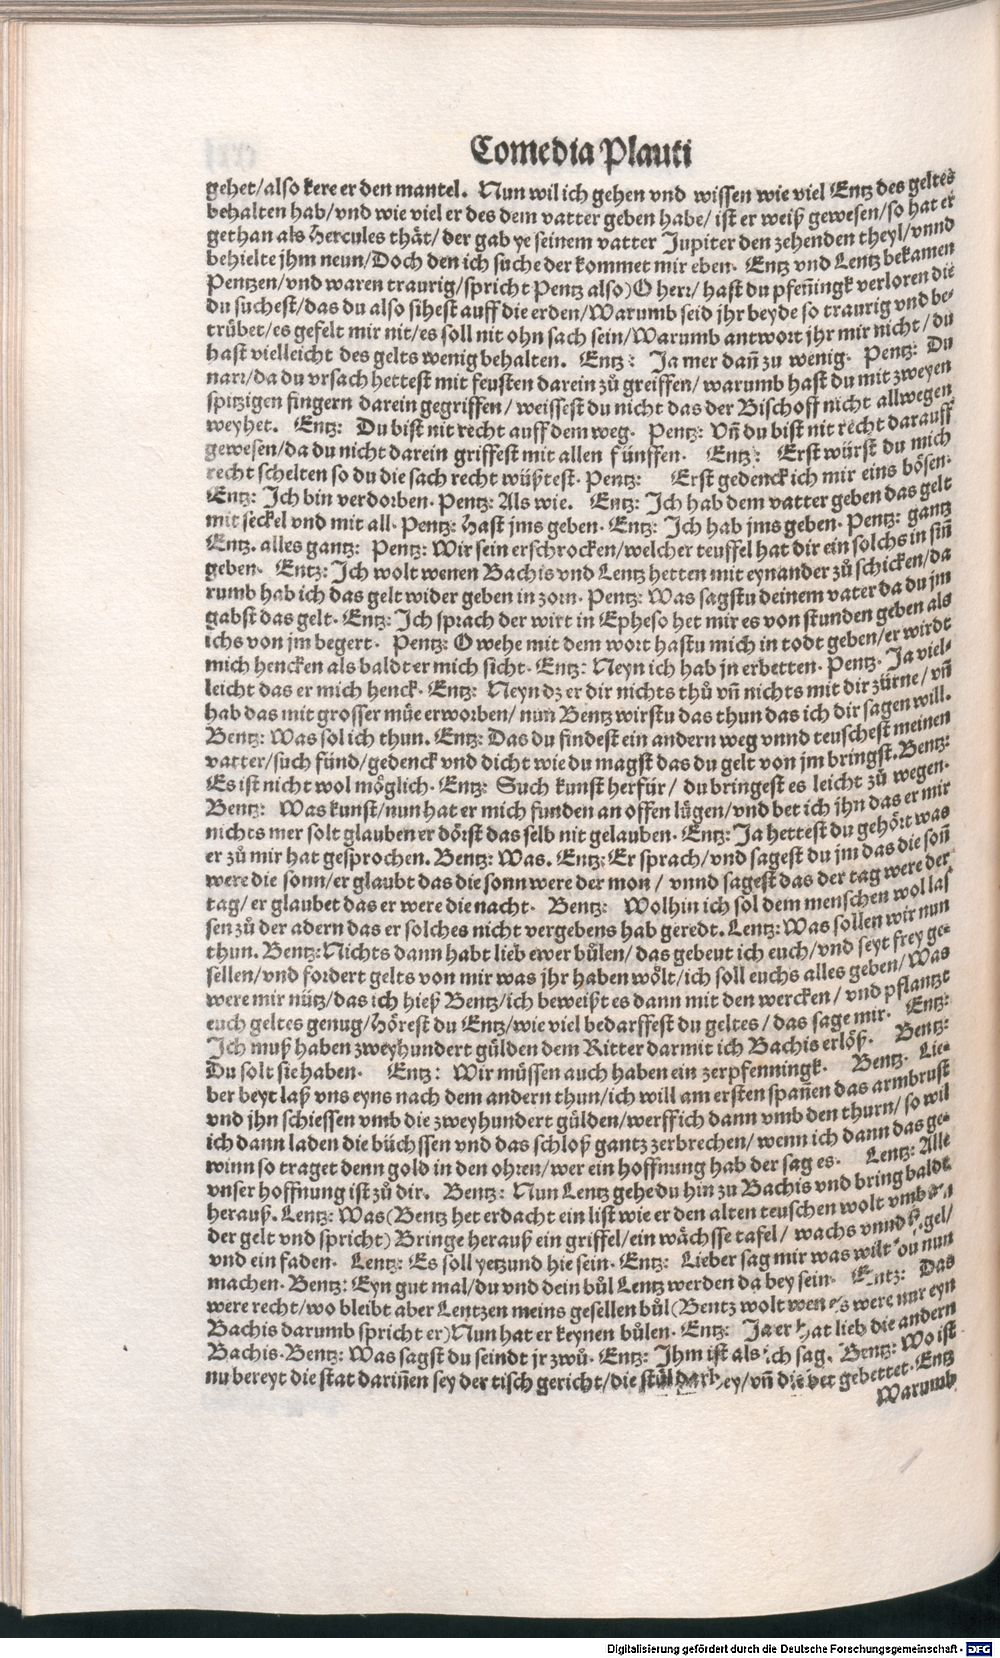 Comedia Plauti
gehet/also kere er den mantel. Nun wil ich gehen vnd wissen wie viel Entz des geltes
behalten hab/vnd wie viel er des dem vatter geben habe/ ist er weiß gewesen/so hat er
gethan als Hercules thåt/ der gab ye seinem vatter Jupiter den zehenden theyl/vnnd
behielte jhm neun/Doch den ich suche der kommet mir eben. Entz vnd Lentz bekamen
Pentzen/vnd waren traurig/spricht Pentz also) O herr/ hast du pfeñingk verloren die
du suchest/das du also sihest auff die erden/Warumb seid jhr beyde so traurig vnd be-
trůbet/es gefelt mir nit/es soll nit ohn sach sein/Warumb antwort jhr mir nicht/ du
hast vielleicht des gelts wenig behalten. Entz: Ja mer dañ zu wenig. Pentz: Du
narr/da du vrsach hettest mit feusten darein zů greiffen/ warumb hast du mit zweyen
spitzigen fingern darein gegriffen/ weissest du nicht das der Bischoff nicht allwegen
weyhet. Entz: Du bist nit recht auff dem weg. Pentz: Vñ du bist nit recht darauff
gewesen/da du nicht darein griffest mit allen fünffen. Entz: Erst würst du mich
recht schelten so du die sach recht wüßtest. Pentz: Erst gedenck ich mir eins bösen.
Entz: Ich bin verdorben. Pentz: Als wie. Entz: Ich hab dem vatter geben das gelt
mit seckel vnd mit all. Pentz: Hast jms geben. Entz: Ich hab jms geben. Pentz: gantz
Entz. alles gantz: Pentz: Wir sein erschrocken/welcher teuffel hat dir ein solchs in siñ
geben. Entz: Ich wolt wenen Bachis vnd Lentz hetten mit eynander zů schicken/da
rumb hab ich das gelt wider geben in zorn. Pentz: Was sagstu deinem vater da du jm
gabst das gelt. Entz: Ich sprach der wirt in Epheso het mir es von stunden geben als
ichs von jm begert. Pentz: O wehe mit dem wort hastu mich in todt geben/er wirdt
mich hencken als baldt er mich sicht. Entz: Neyn ich hab jn erbetten. Pentz. Ja viel-
leicht das er mich henck. Entz: Neyn dz er dir nichts thů vñ nichts mit dir zürne/ vñ
hab das mit grosser müe erworben/ nun Bentz wirstu das thun das ich dir sagen will.
Bentz: Was sol ich thun. Entz: Das du findest ein andern weg vnnd teuschest meinen
vatter/such fünd/gedenck vnd dicht wie du magst das du gelt von jm bringst. Bentz:
Es ist nicht wol möglich. Entz: Such kunst herfür/ du bringest es leicht zů wegen.
Bentz: Was kunst/nun hat er mich funden an offen lügen/vnd bet ich jhn das er mir
nichts mer solt glauben er dörst das selb nit gelauben. Entz: Ja hettest du gehört was
er zů mir hat gesprochen. Bentz: Was. Entz: Er sprach/vnd sagest du jm das die soñ
were die sonn/er glaubt das die sonn were der mon/ vnnd sagest das der tag were der
tag/ er glaubet das er were die nacht. Bentz: Wolhin ich sol dem menschen wol las
sen zů der adern das er solches nicht vergebens hab geredt. Lentz: Was sollen wir nun
thun. Bentz: Nichts dann habt lieb ewer bůlen/ das gebeut ich euch/vnd seyt frey ge-
sellen/vnd fordert gelts von mir was jhr haben wölt/ich soll euchs alles geben/Was
were mir nütz/das ich hieß Bentz/ich beweißt es dann mit den wercken/ vnd pflantzt
euch geltes genug/Hörest du Entz/wie viel bedarffest du geltes/ das sage mir. Entz:
Ich muß haben zweyhundert gülden dem Ritter darmit ich Bachis erlöß. Bentz:
Du solt sie haben. Entz: Wir müssen auch haben ein zerpfenningk. Bentz. Lie-
ber beyt laß vns eyns nach dem andern thun/ich will am ersten spañen das armbrust
vnd jhn schiessen vmb die zweyhundert gülden/werff ich dann vmb den thurn/ so wil
ich dann laden die büchssen vnd das schloß gantz zerbrechen/ wenn ich dann das ge-
winn so traget denn gold in den ohren/wer ein hoffnung hab der sag es. Lentz: Alle
vnser hoffnung ist zů dir. Bentz: Nun Lentz gehe du hin zu Bachis vnd bring baldt
herauß. Lentz: Was (Bentz het erdacht ein list wie er den alten teuschen wolt vmb
der gelt vnd spricht) Bringe herauß ein griffel/ein wächsse tafel/ wachs vnnd sigel/
vnd ein faden. Lentz: Es soll yetzund hie sein. Entz: Lieber sag mir was wilt du nun
machen. Bentz: Eyn gut mal/du vnd dein bůl Lentz werden da bey sein. Entz: Das
were recht/wo bleibt aber Lentzen meins gesellen bůl (Bentz wolt wen es were nur eyn
Bachis darumb spricht er) Nun hat er keynen bůlen. Entz: Ja er hat lieb die andern
Bachis. Bentz: Was sagst du seindt jr zwů. Entz: Ihm ist als ich sag. Bentz: Wo ist
nu bereyt die stat dariñen sey der tisch gericht/die stůl darbey/vñ die bet gebettet. Entz
Warumb
Digitalisierung gefördert durch die Deutsche Forschungsgemeinschaft - DFG